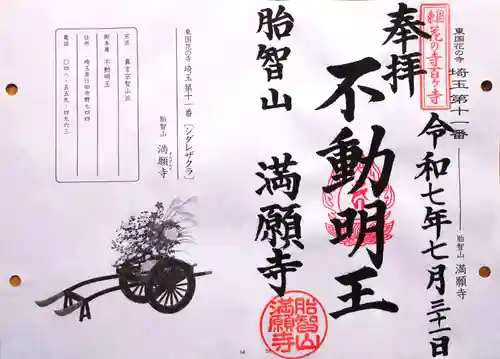 東国花の寺 埼玉 第十一番
胎智山 満願寺
東国
花の寺百ヶ寺
奉拝
令和七年七月三十一日
不動明王
胎智山 満願寺
胎智山
満願寺
東国花の寺 埼玉 第十一番 〔シダレザクラ〕
胎智山 満願寺
まんがんじ
宗派 真言宗智山派
御本尊 不動明王
住所 埼玉県行田市野七四四
電話 〇四八-五五九-四九六三
54